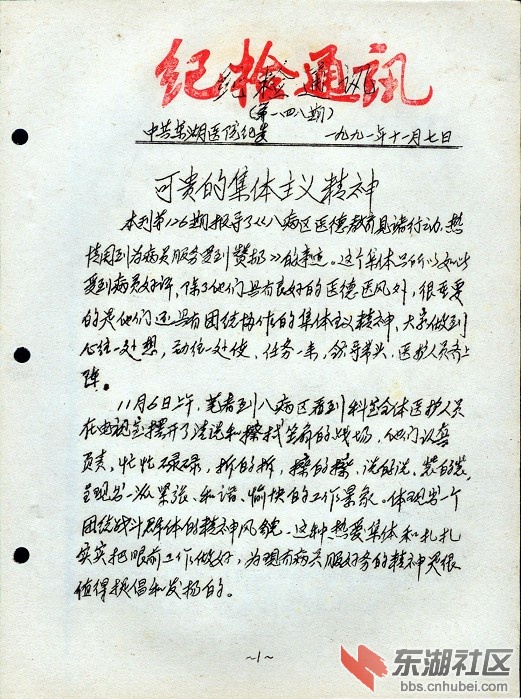 纪检通讯
纪检通讯
(第一四八期)
中共东湖医院纪委 一九九一年十一月七日
可贵的集体主义精神
本刊第126期报导了《八病区医德教育见诸行动,热
情周到为病员服务受到赞扬》的事迹。这个集体之所以如此
受到病员好评,除了他们具有良好的医德医风外,很重要
的是他们还具有团结协作的集体主义精神,大家做到
心往一处想,劲往一处使,任务一来,领导带头,医护人员齐上
阵。
11月6日上午,笔者到八病区看到科室全体医护人员
在电视室摆开了清洗和擦拭门窗的战场,他们认真
负责,忙忙碌碌,拆的拆,擦的擦,洗的洗,装的装,
呈现出一派紧张、和谐、愉快的工作景象。体现出一个
团结战斗群体的精神风貌。这种热爱集体和扎扎
实实把眼前工作做好,为病员服好务的精神是很
值得提倡和发扬的。
~1~
东湖社区
bbs.cnhubei.com